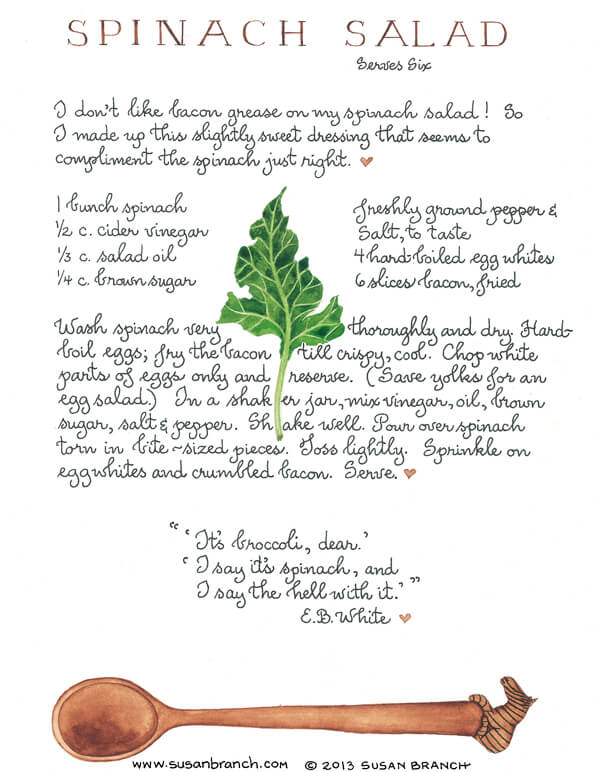 SPINACH SALAD
Serves Six
I don't like bacon grease on my spinach salad! So
I made up this slightly sweet dressing that seems to
compliment the spinach just right.
1 bunch spinach
1/2 c. cider vinegar
1/3 c. salad oil
1/4 c. brown sugar
freshly ground pepper &
Salt, to taste
4 hard-boiled egg whites
6 slices bacon, fried
Wash spinach very thoroughly and dry. Hard-
boil eggs; fry the bacon till crispy, cool. Chop white
parts of eggs only and reserve. (Save yolks for an
egg salad.) In a shaker jar, mix vinegar, oil, brown
sugar, salt & pepper. Shake well. Pour over spinach
torn in bite~sized pieces. Toss lightly. Sprinkle on
egg whites and crumbled bacon. Serve.
“‘It's broccoli, dear.’
‘I say it's spinach, and
I say the hell with it.’”
E.B. White
www.susanbranch.com © 2013 SUSAN BRANCH